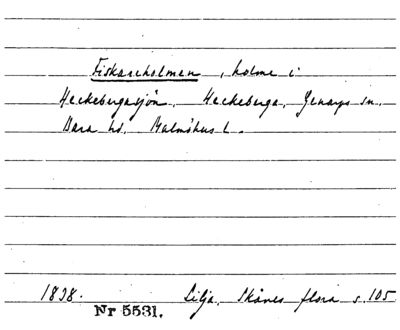 Fiskareholmen, holme i
Heckebergasjön. Heckeberga, Genarps sn.
Bara hd. Malmöhus l.
1838. Lilja, Skånes flora s. 105
Nr 5531.